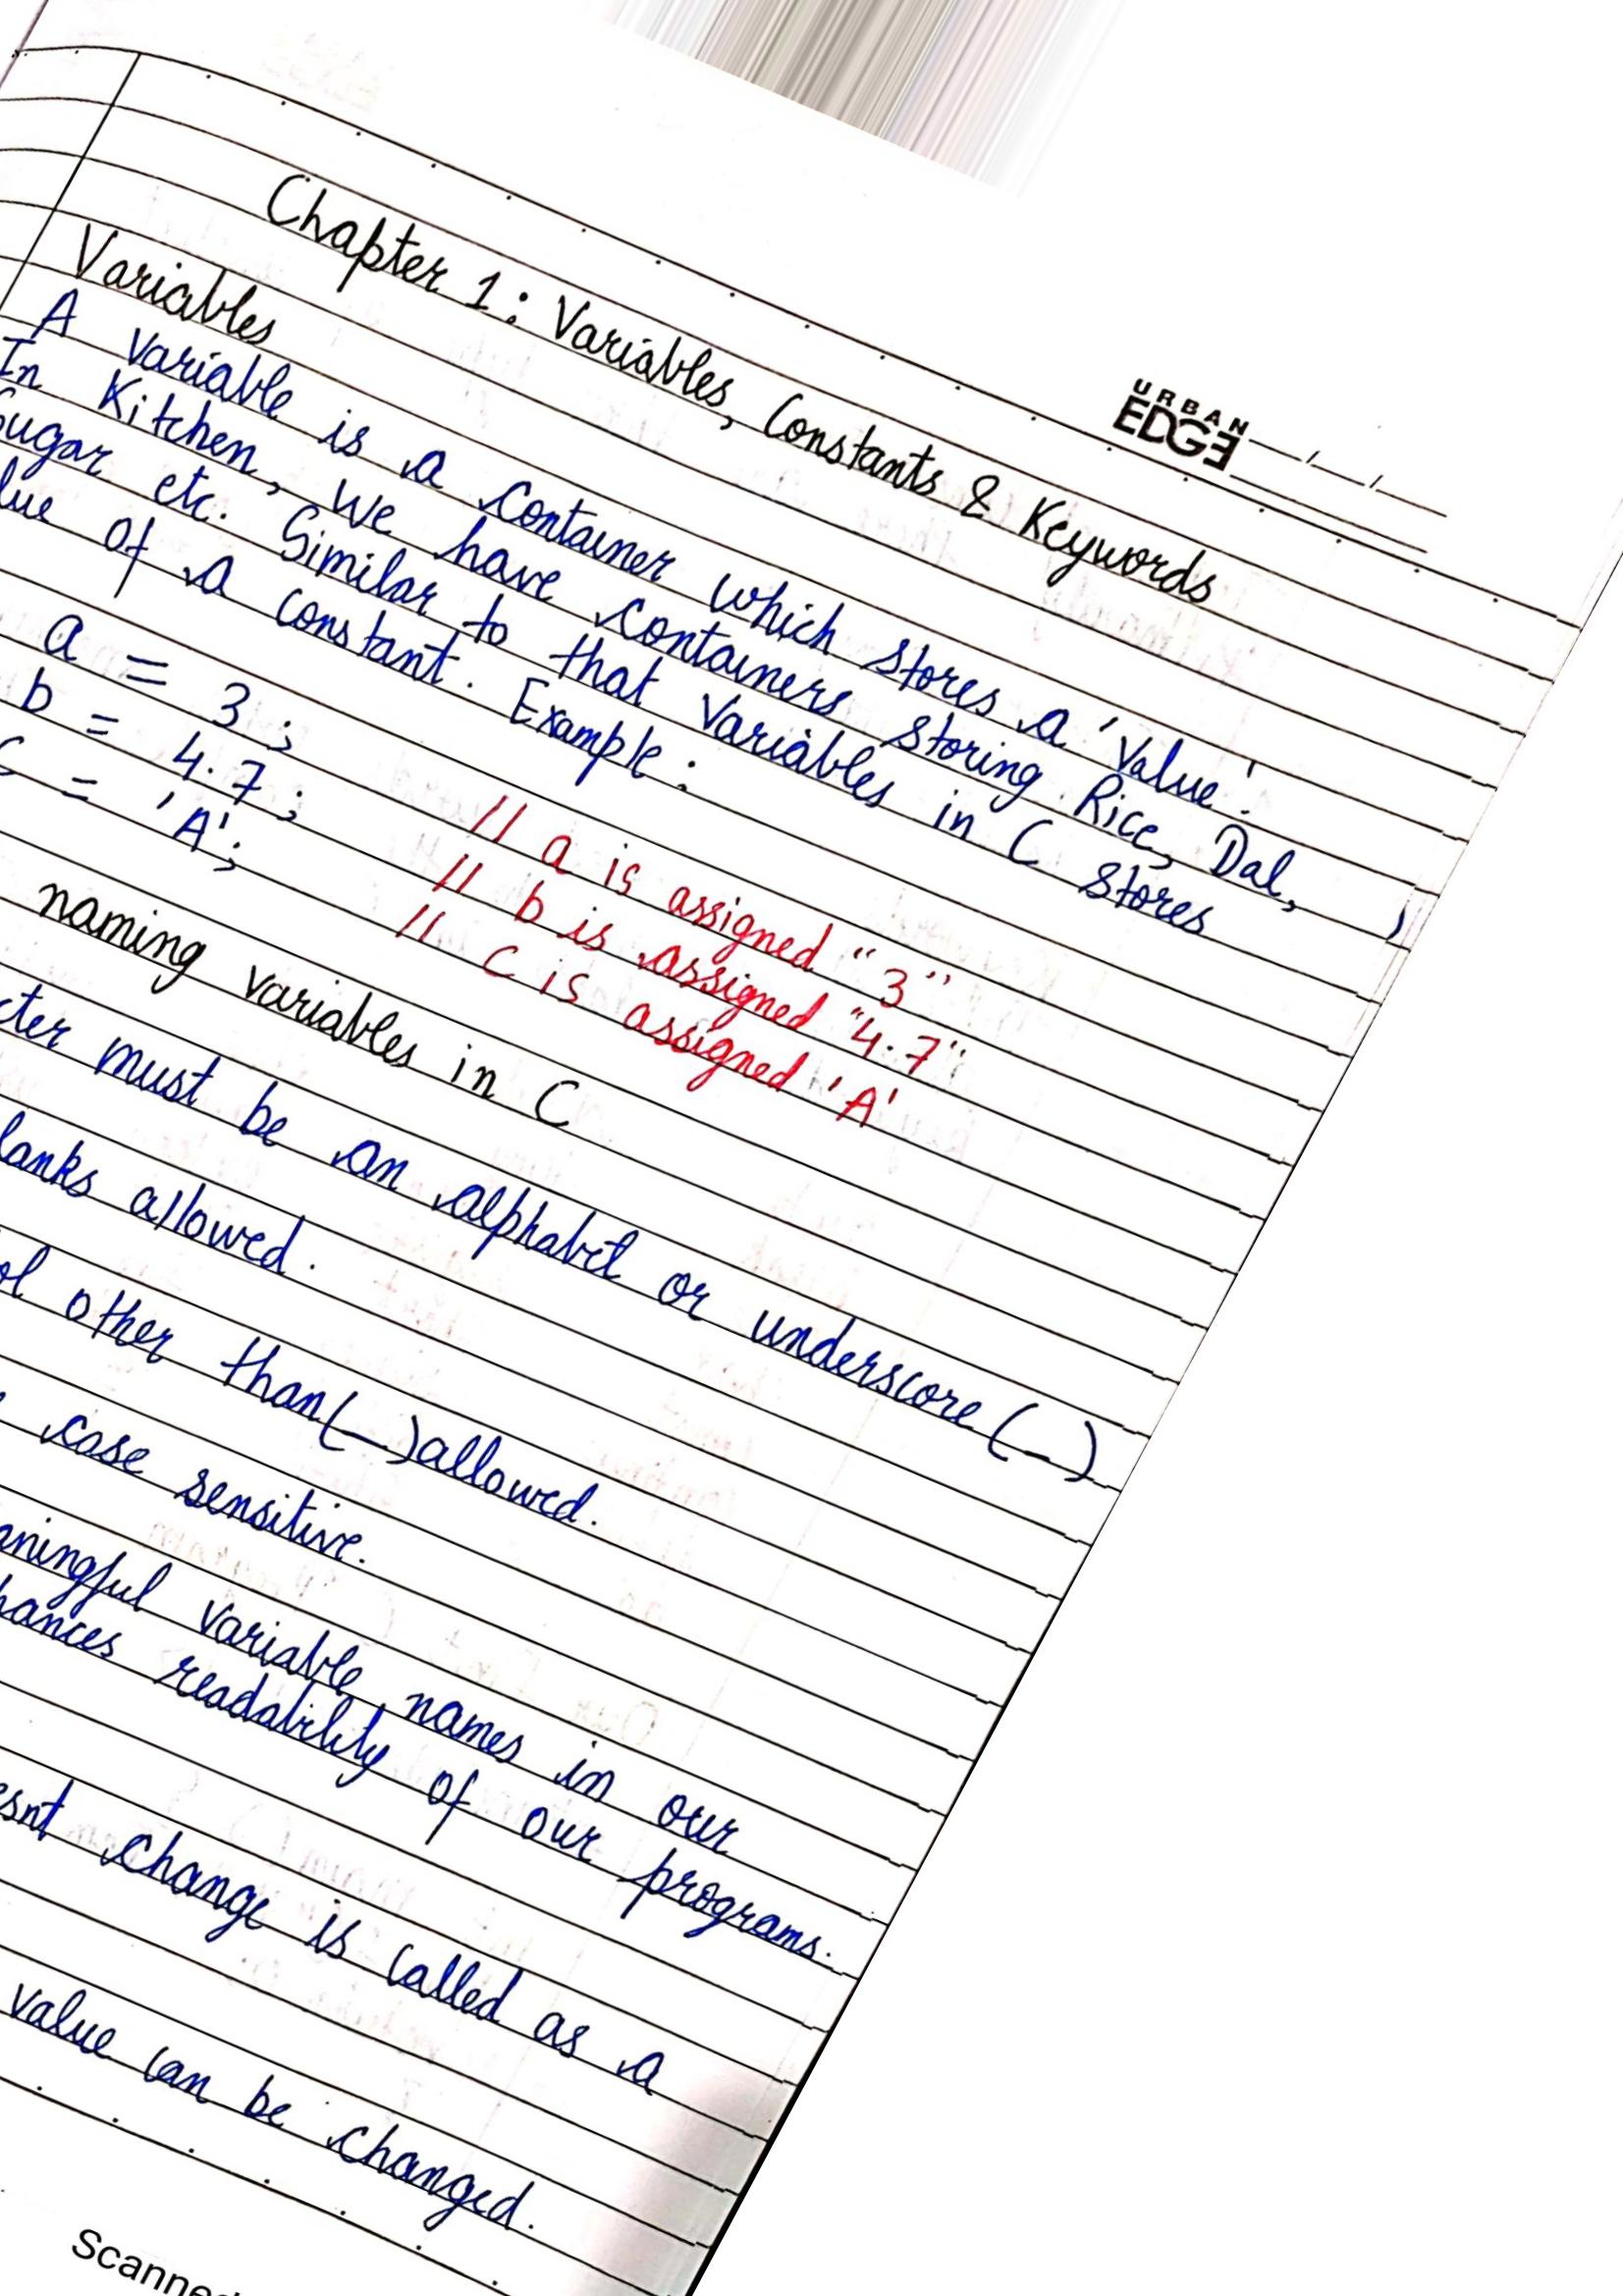 URBAN
EDGE
Chapter 1: Variables, Constants & Keywords
Variables
A Variable is a container which stores a 'Value'.
In Kitchen, We have containers storing Rice, Dal,
Sugar etc. Similar to that Variables in C stores
of a constant. Example:
a = 3;
// a is assigned "3"
b = 4.7;
// b is assigned "4.7"
c = 'A';
// c is assigned 'A'
naming variables in C
must be an alphabet or underscore (_)
allowed.
other than (_) allowed.
case sensitive.
variable names in our
readability of our programs.
change is called as a
value can be changed.